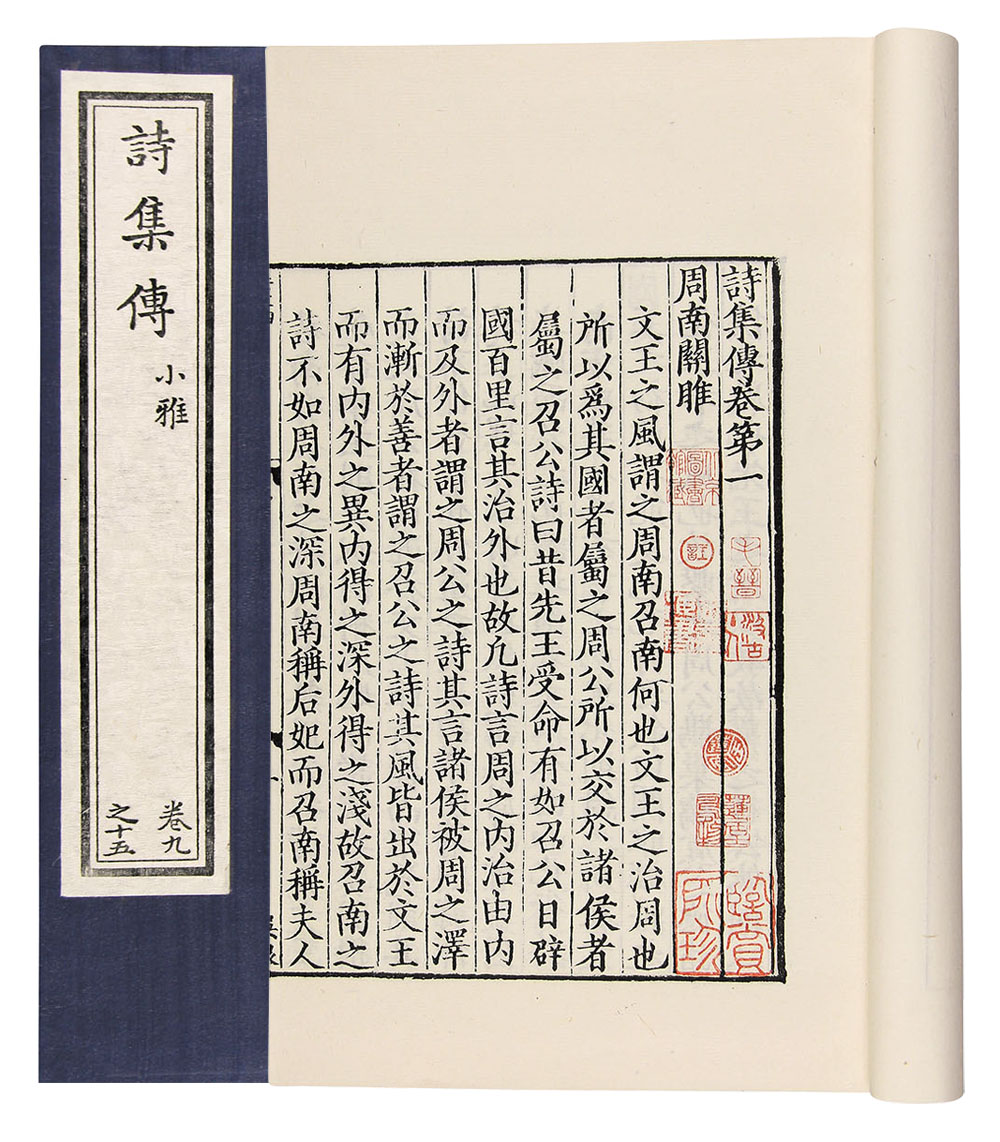 詩集傳
小雅
卷九
之十五
詩集傳卷第一
周南關雎
文王之風謂之周南召南何也文王之治周也
所以爲其國者屬之周公所以交於諸侯者
屬之召公詩曰昔先王受命有如召公日辟
國百里言其治外也故凢詩言周之内治由内
而及外者謂之周公之詩其言諸侯被周之澤
而漸於善者謂之召公之詩其風皆出於文王
而有内外之異内得之深外得之淺故召南之
詩不如周南之深周南稱后妃而召南稱夫人
毛晉